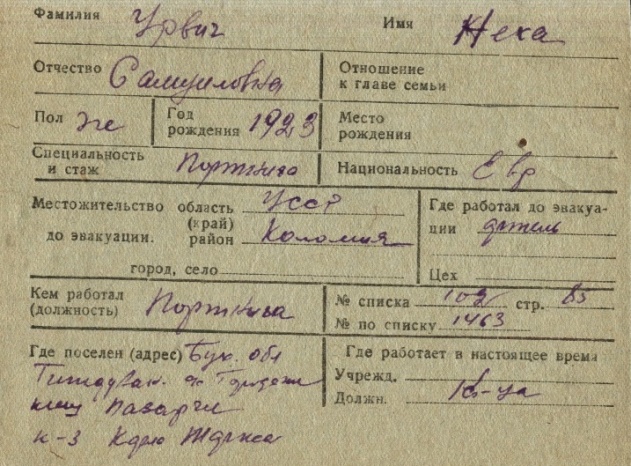 Фамилия Урвич Имя Неха
Отчество Самуиловна Отношение
к главе семьи
Пол же Год
рождения 1923 Место
рождения
Специальность
и стаж Портниха Национальность Евр
Местожительство область УССР Где работал до эвакуа-
(край)
до эвакуации. район Коломия ции артель
город, село
Цех
Кем работал
(должность) Портниха № списка 102 стр. 85
№ по списку 1463
Где поселен (адрес) Бух. обл Где работает в настоящее время
Учрежд.
Должн.
к-з Карл Маркса